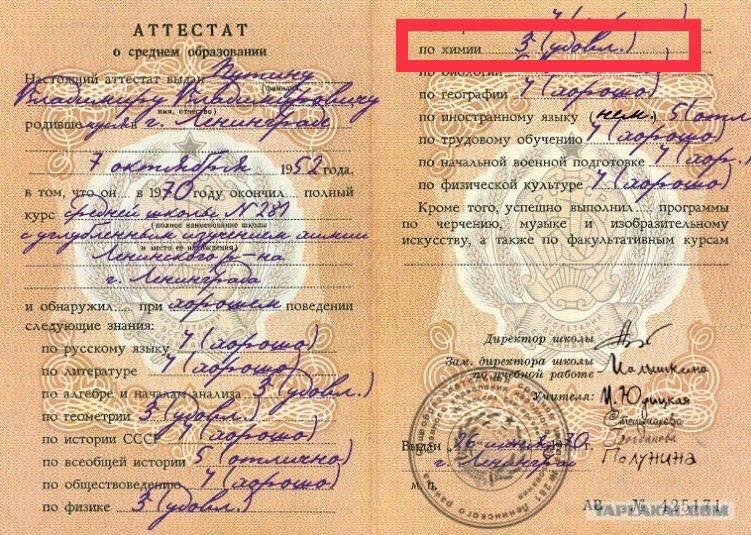 АТТЕСТАТ
о среднем образовании
Настоящий аттестат выдан Путину
(фамилия)
Владимиру Владимировичу
имя, отчество)
родившемуся в г. Ленинград
7 октября 1952 года,
в том, что он в 1970 году окончил полный
курс средней школы N 281
(полное наименование школы
с углубленным изучением химии
и место ее нахождения)
Ленинского р-на
г. Ленинграда
и обнаружил при хорошем поведении
следующие знания:
по русскому языку 4 (хорошо)
по литературе 4 (хорошо)
по алгебре и началам анализа 3 (удовл.)
по геометрии 3 (удовл.)
по истории СССР 4 (хорошо)
по всеобщей истории 5 (отлично)
по обществоведению 4 (хорошо)
по физике 3 (удовл.)
по химии 3 (удовл.)
по биологии
по географии 4 (хорошо)
по иностранному языку (нем.) 5 (отл
по трудовому обучению 4 (хорошо)
по начальной военной подготовке 4 (хор.
по физической культуре 4 (хорошо)
Кроме того, успешно выполнил программы
по черчению, музыке и изобразительному
искусству, а также по факультативным курсам
Директор школы
Зам. директора школы
по учебной работе
Учителя: И. Юдицкая
Стельмахова
Богданова
Полунина
Выдан 1970 г.
г. Ленинград
м. п.
АВ № 425171
YAPLAKAL.COM